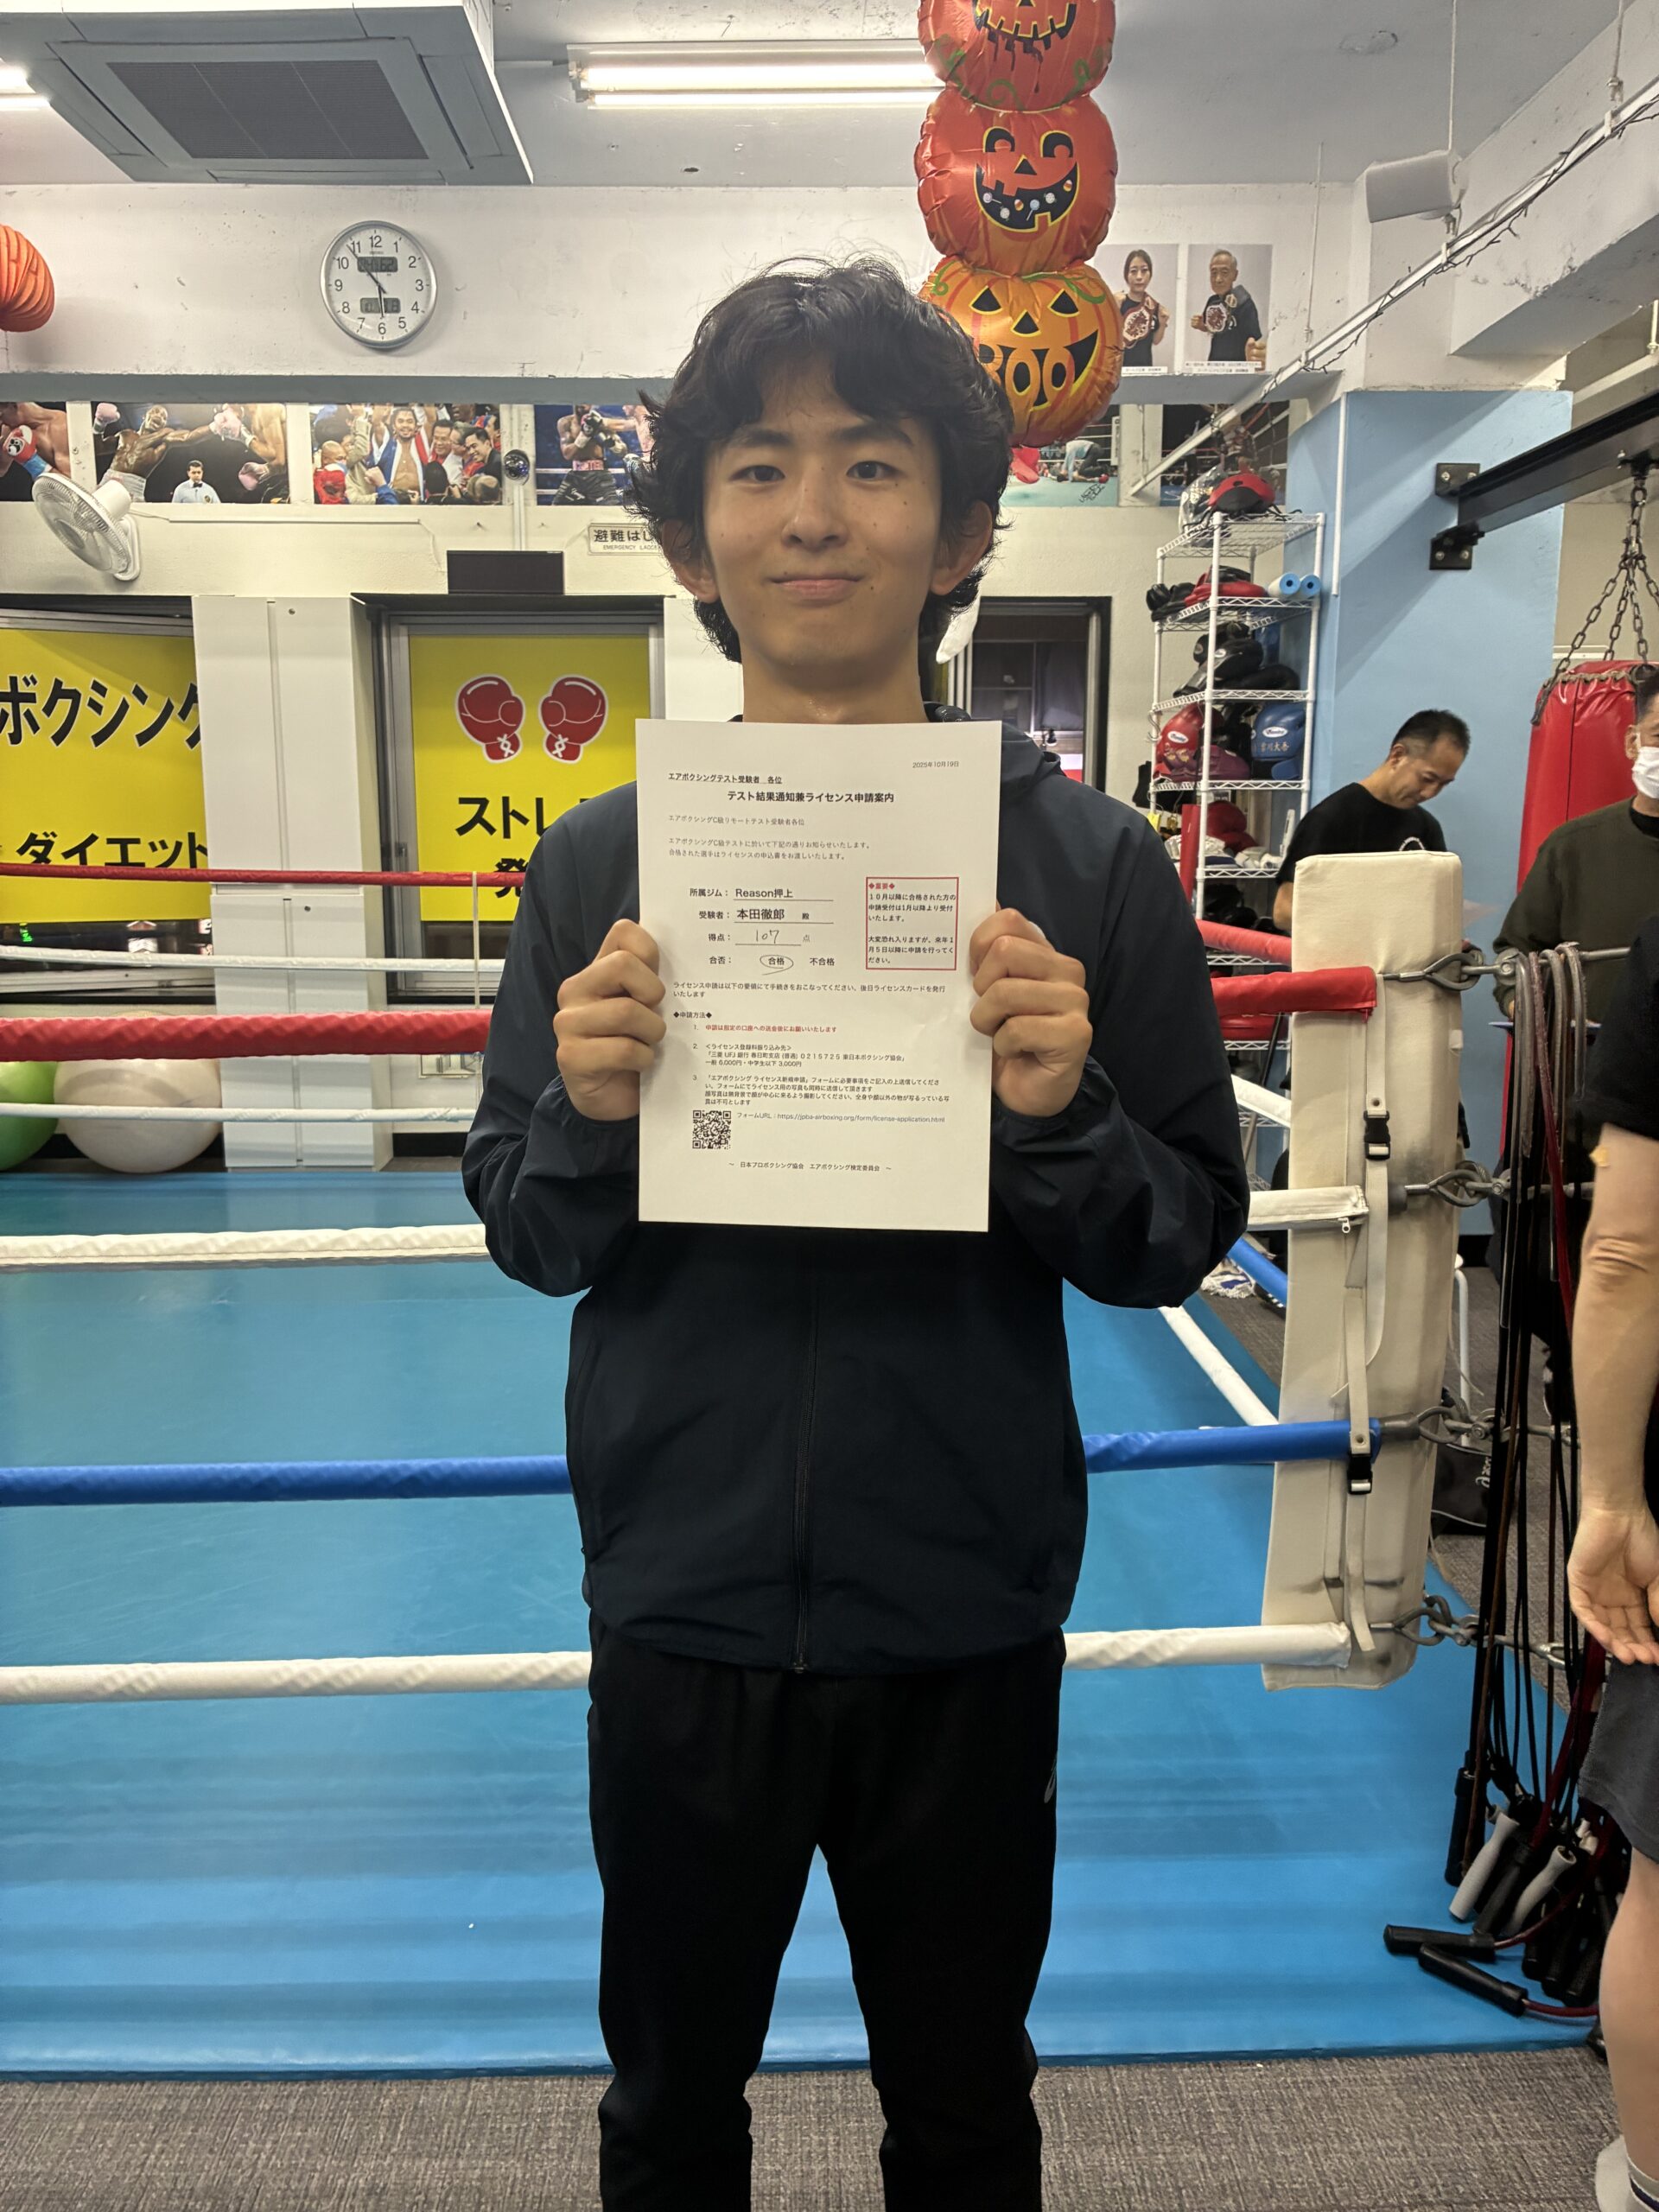 12
1
2
3
4
5
6
7
8
9
10
11
BOO
避難はし
EMERGENCY LADDE
ボクシング
ダイエット
ストレ
発
2025年10月19日
エアボクシングテスト受験者 各位
テスト結果通知兼ライセンス申請案内
エアボクシングC級リモートテスト受験者各位
エアボクシングC級テストに於いて下記の通りお知らせいたします。
合格された選手はライセンスの申込書をお渡しいたします。
所属ジム: Reason押上
受験者: 本田徹郎 殿
得点: 107 点
合否: 合格 不合格
◆重要◆
10月以降に合格された方の
申請受付は1月以降より受付
いたします。
大変恐れ入りますが、来年1
月5日以降に申請を行ってく
ださい。
ライセンス申請は以下の要領にて手続きをおこなってください、後日ライセンスカードを発行
いたします
◆申請方法◆
1. 申請は指定の口座への送金後にお願いいたします
2. <ライセンス登録料振り込み先>
「三菱UFJ銀行 春日町支店(普通)0215725 東日本ボクシング協会」
一般 6,000円・中学生以下 3,000円
3 「エアボクシング ライセンス新規申請」フォームに必要事項をご記入の上送信してくださ
い。フォームにてライセンス用の写真も同時に送信して頂きます
顔写真は無背景で顔が中心に来るよう撮影してください。全身や顔以外の物が写るっている写
真は不可とします
フォームURL:https://jpba-airboxing.org/form/license-application.html
~ 日本プロボクシング協会 エアボクシング検定委員会 ~